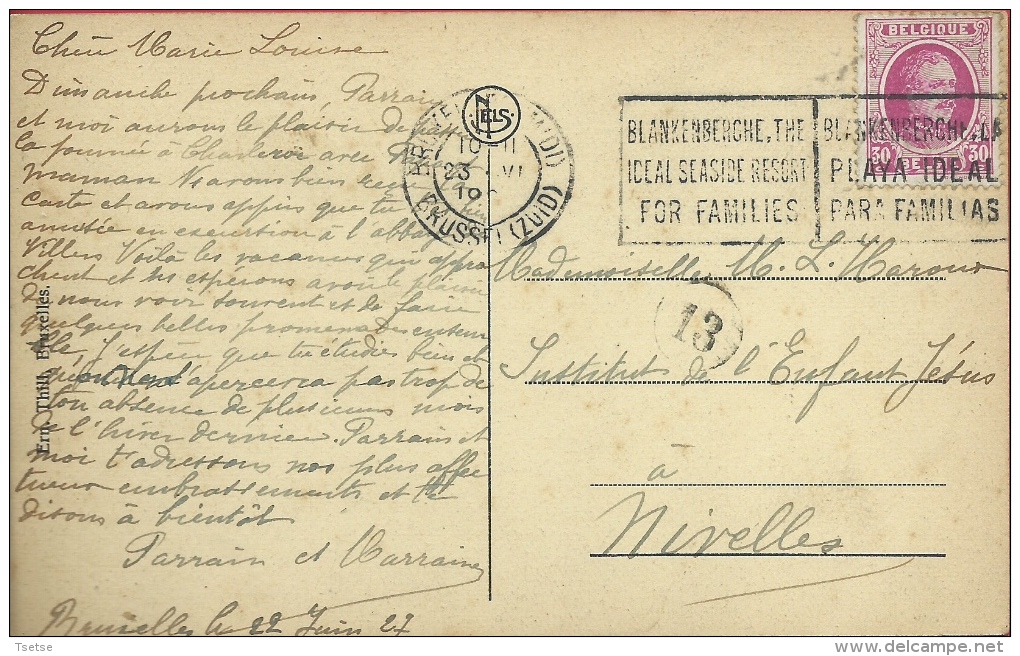 Chère Marie Louise
Dimanche prochain, Parrain
et moi aurons le plaisir de passer
la journée à Charleroi avec
Maman Nous avons bien reçu
carte et avons appris que tu
amusée en excursion à l'abbaye
Villers Voilà les vacances qui appro
chent et ns espérons avoir le plaisir
de nous voir souvent et de faire
quelques belles promenades ensem
ble, J'espère que tu étudies bien et
t'apercevra pas trop de
ton absence de plusieurs mois
de l'hiver dernier. Parrain et
moi t'adressons nos plus affec
tueux embrassements et te
disons à bientôt
Parrain et Marraine
Bruxelles le 22 Juin 27
Ern. Thill, Bruxelles.
NELS
10 - 11
23 VI
19
BRUSSEL (ZUID)
BLANKENBERGHE, THE
IDEAL SEASIDE RESORT
FOR FAMILIES
BLANKENBERGHE, LA
PLAYA IDEAL
PARA FAMILIAS
BELGIQUE
30 30
BELGIE
Mademoiselle M. L.
13
Institut de l'Enfant Jésus
à
Nivelles
Tsetse
delcampe.net